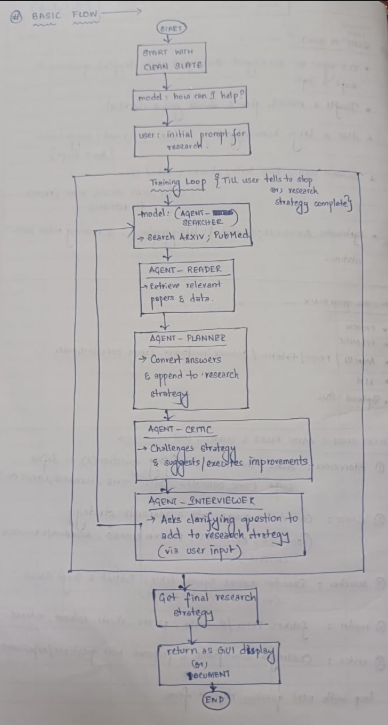 BASIC FLOW
START
START WITH
CLEAN SLATE
model: how can I help?
user: initial prompt for
research.
Training Loop { Till user tells to stop
(or) research
strategy complete}
model: (AGENT-
SEARCHER)
→ Search ArXiv; PubMed
AGENT-READER
→ Retrieve relevant
papers & data.
AGENT-PLANNER
→ Convert answers
& append to research
strategy
AGENT-CRITIC
→ Challenges strategy
& suggests/executes improvements
AGENT-INTERVIEWER
→ Asks clarifying question to
add to research strategy
(via user input)
Get final research
strategy
return as GUI display
(or)
DOCUMENT
END